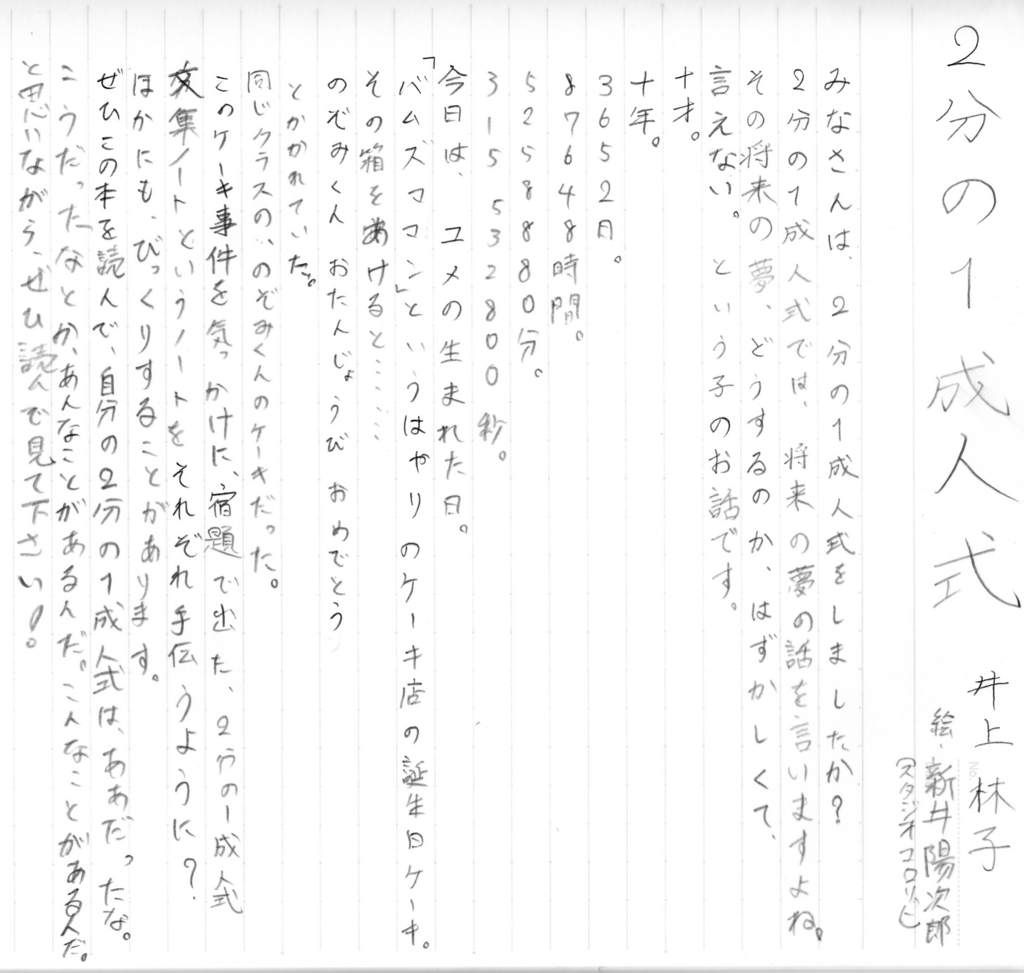 2分の1成人式
井上林子
絵・新井陽次郎
(スタジオコロリド)
みなさんは、2分の1成人式をしましたか?
2分の1成人式では、将来の夢の話を言いますよね。
その将来の夢、どうするのか、はずかしくて、
言えない。という子のお話です。
十才。
十年。
3652日。
87648時間。
5258880分。
315532800秒。
今日は、ユメの生まれた日。
「バムズママン」というはやりのケーキ店の誕生日ケーキ。
その箱をあけると……
のぞみくん おたんじょうび おめでとう
とかかれていた。
同じクラスの、のぞみくんのケーキだった。
このケーキ事件を気っかけに、宿題で出た、2分の1成人式
文集ノートというノートをそれぞれ手伝うように?
ほかにも、びっくりすることがあります。
ぜひこの本を読んで、自分の2分の1成人式は、ああだったな。
こうだったなとか、あんなことがあるんだ。こんなことがあるんだ。
と思いながら、ぜひ読んで見て下さい!。